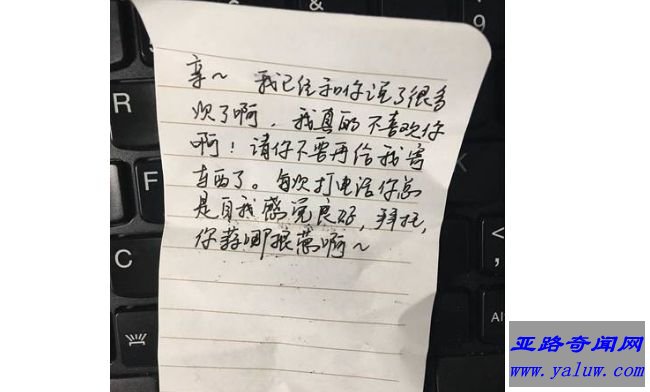 亲~ 我已经和你说了很多
次了啊，我真的不喜欢你
啊！请你不要再给我寄
东西了。每次打电话你总
是自我感觉良好，拜托，
你算哪根葱啊~
R
F
C
9
<
,
Alt
亚路奇闻网
www.yaluw.com